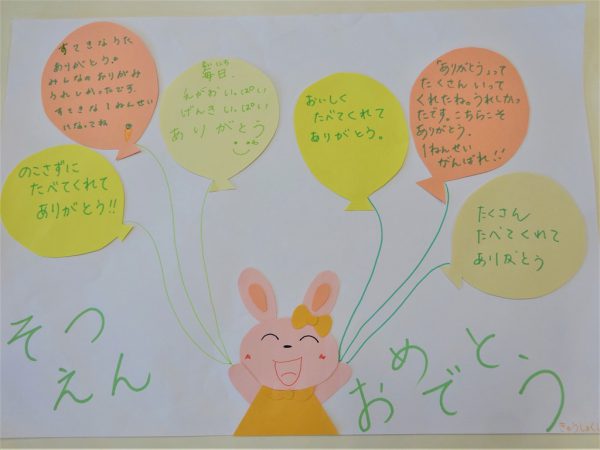 すてきなうた
ありがとう。
みんなのおりがみ
うれしかったです。
すてきな1ねんせい
になってね
毎日、
えがおいっぱい
げんきいっぱい
ありがとう
おいしく
たべてくれて
ありがとう。
「ありがとう」って
たくさんいって
くれたね。うれしかっ
たです。こちらこそ
ありがとう。
1ねんせい
がんばれ!!
のこさずに
たべてくれて
ありがとう!!
たくさん
たべてくれて
ありがとう
そつ
えん
おめでとう
きゅうしょくし